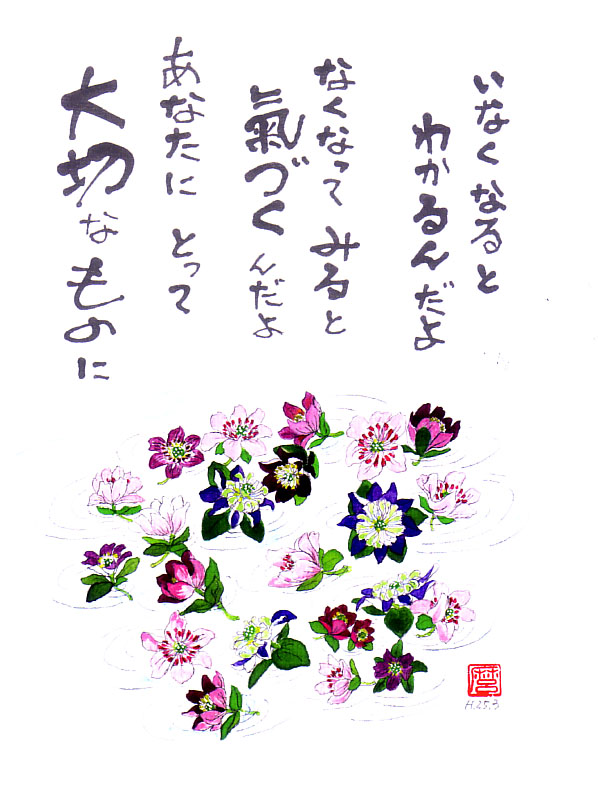 いなくなると
わかるんだよ
なくなって みると
氣づくんだよ
あなたに とって
大切なものに
H.25.3